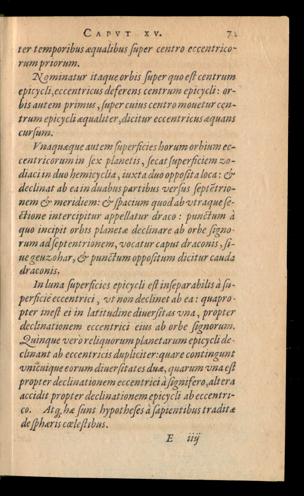 CAPVT XV. 7
ter temporibus æqualibus super centro eccentrico-
rum priorum.
Nominatur itaque orbis super quo est centrum
epicycli, eccentricus deferens centrum epicycli: or-
bis autem primus, super cuius centro mouetur cen-
trum epicycli æqualiter, dicitur eccentricus æquans
cursum.
Vnaquæque autem superficies horum orbium ec-
centricorum in sex planetis, secat superficiem zo-
diaci in duo hemicyclia, iuxta duo opposita loca: &
declinat ab ea in duabus partibus versus septētrio-
nem & meridiem: & spacium quod ab vtraque se-
ctione intercipitur appellatur draco: punctum à
quo incipit orbis planetæ declinare ab orbe signo-
rum ad septentrionem, vocatur caput draconis, si-
ue geuzohar, & punctum oppositum dicitur cauda
draconis.
In luna superficies epicycli est inseparabilis à su-
perficie eccentrici, vt non declinet ab ea: quapro-
pter inest ei in latitudine diuersitas vna, propter
declinationem eccentrici eius ab orbe signorum.
Quinque vero reliquorum planetarum epicycli de-
clinant ab eccentricis dupliciter: quare contingunt
vnicuique eorum diuersitates duæ, quarum vna est
propter declinationem eccentrici à signifero, altera
accidit propter declinationem epicycli ab eccentri-
co. Atq; hæ sunt hypotheses à sapientibus traditæ
de sphæris cœlestibus.
E iiij